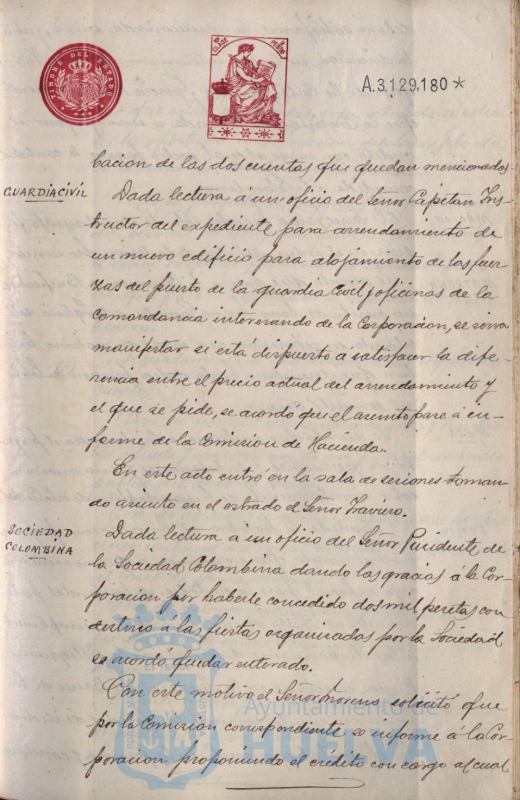 TIMBRE DEL ESTADO
A.3.129,180*
bacion de las dos cuentas que quedan mencionados.
GUARDIA CIVIL
Dada lectura á un oficio del Señor Capitan Ins-
tructor del expediente para arrendamiento de
un nuevo edificio para alojamiento de las fuer-
zas del puerto de la guardia Civil y oficinas de la
Comandancia interesando de la Corporacion, se sirva
manifestar si está dispuerto á satisfacer la dife-
rencia entre el precio actual del arrendamiento y
el que se pide, se acordó que el asunto pase á in-
forme de la Comision de Hacienda.
En este acto entró en la sala de sesiones toman-
do asiento en el estrado el Señor Traviero.
SOCIEDAD
COLOMBINA
Dada lectura á un oficio del Señor Presidente de
la Sociedad Colombina dando las gracias á la Cor-
poracion por haberle concedido dos mil pesetas con
destino á las fiestas organizadas por la Sociedad
se acordó quedar enterado.
Con este motivo el Señor Moreno solicitó que
por la Comision correspondiente se informe á la Cor-
poracion proponiendo el credito con cargo al cual
Ayuntamiento de
HUELVA